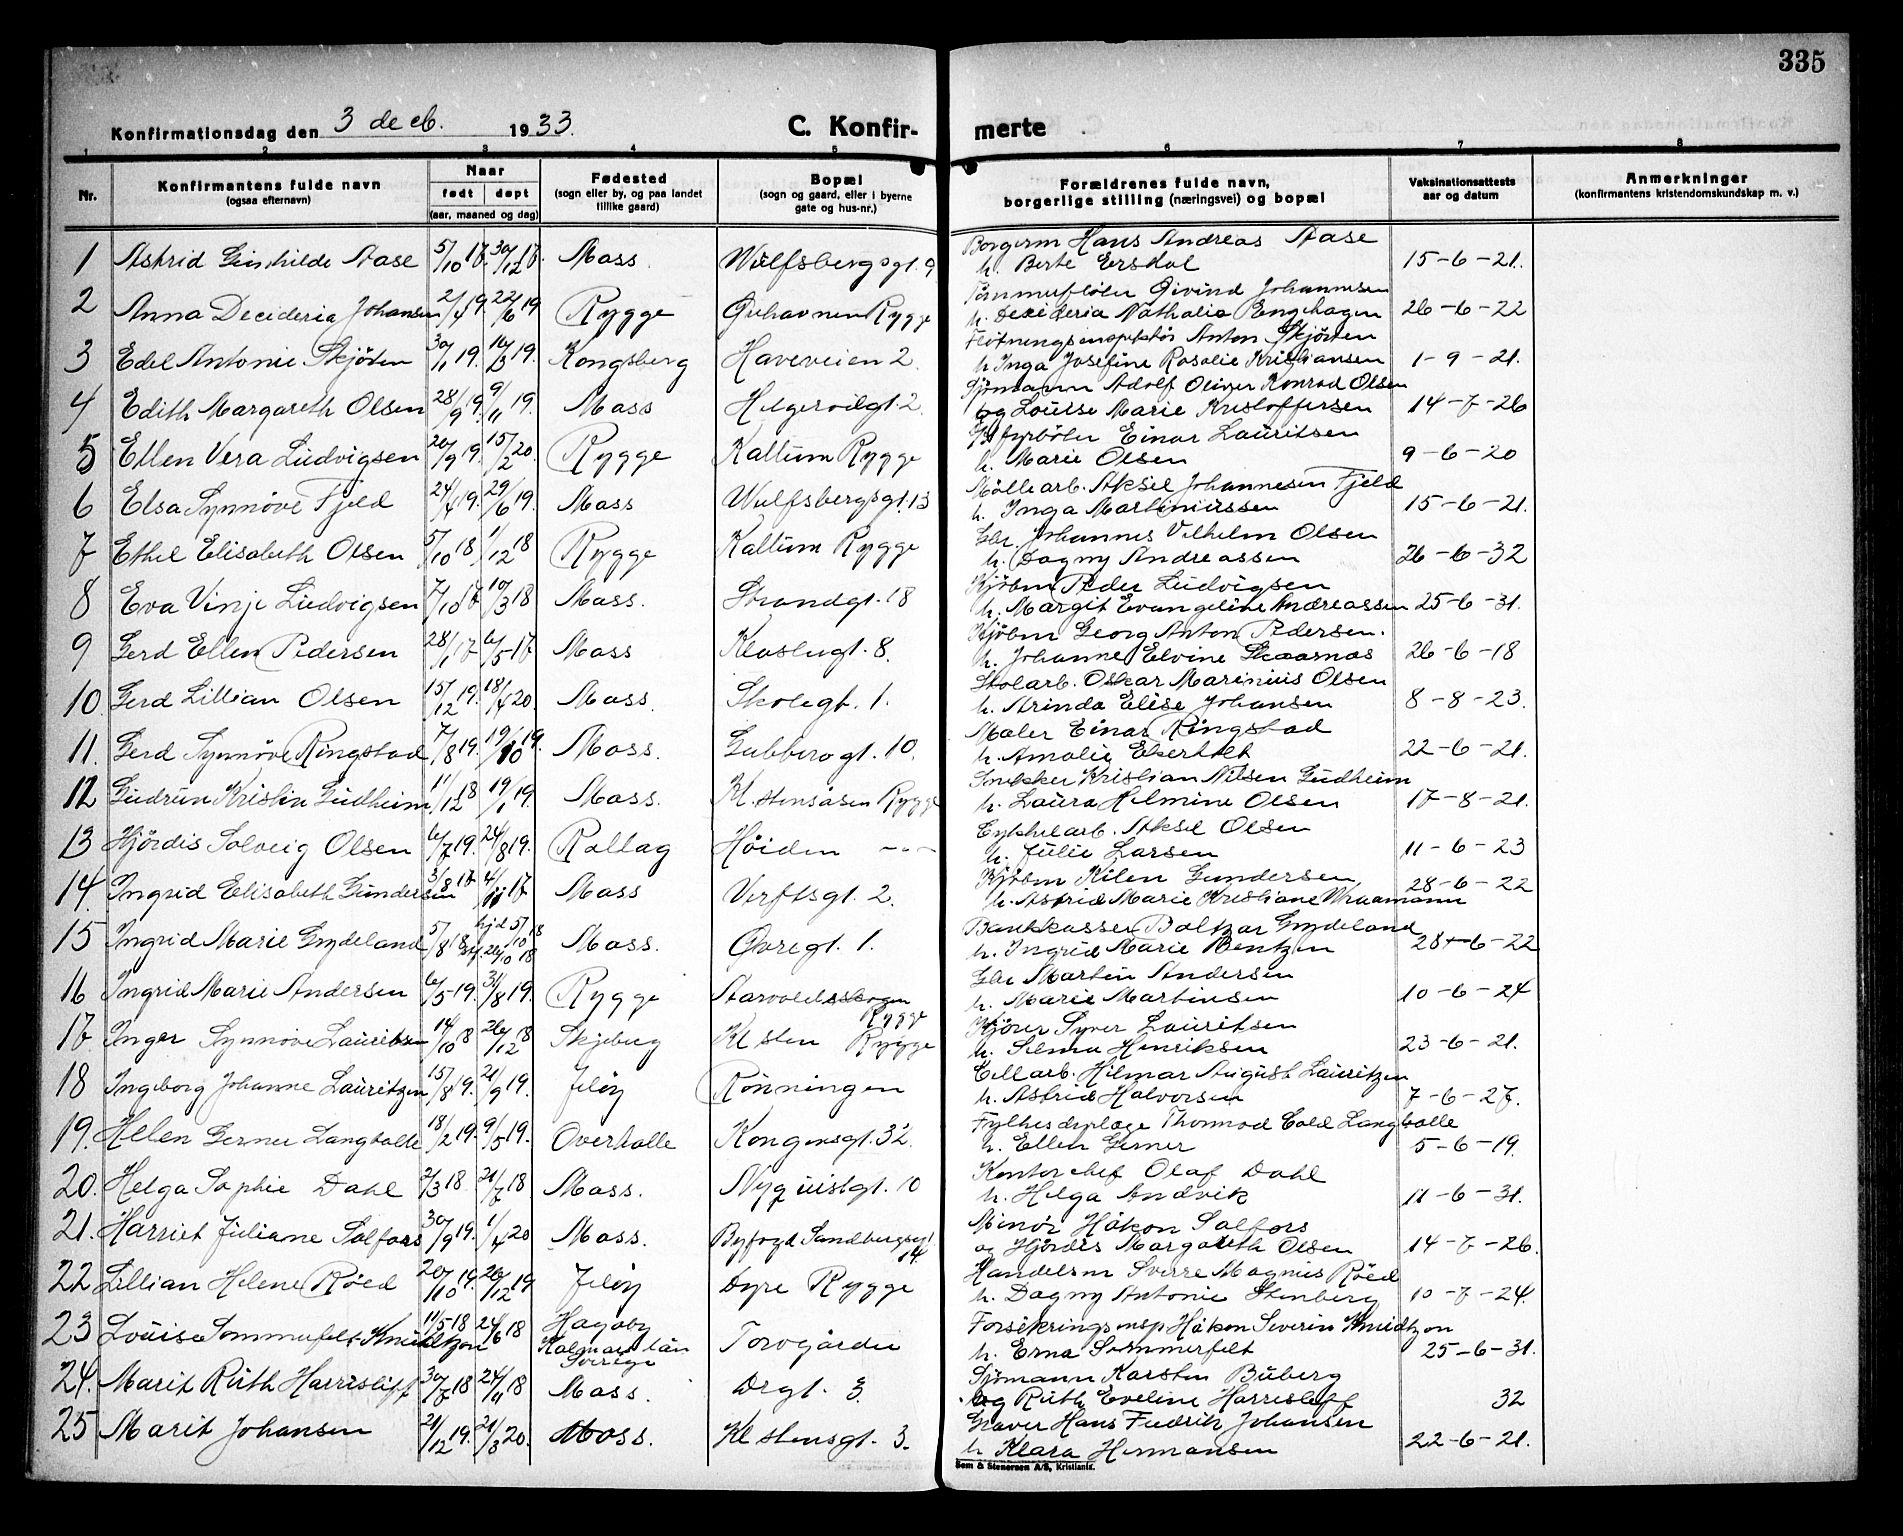 335
Konfirmationsdag den 3 decb. 1933.
C. Konfir-merte
1 2 3 4 5 6 7 8
Nr.
Konfirmantens fulde navn
(ogsaa efternavn)
Naar
født døpt
(aar, maaned og dag)
Fødested
(sogn eller by, og paa landet
tillike gaard)
Bopæl
(sogn og gaard, eller i byerne
gate og hus-nr.)
Forældrenes fulde navn,
borgerlige stilling (næringsvei) og bopæl
Vaksinationsattests
aar og datum
Anmerkninger
(konfirmantens kristendomskundskap m. v.)
Borgerm Hans Andreas Aase
1 Astrid Gunhilde Aase 5/10 17. 30/12 17. Moss. Wulfsbergsgt. 9 h. Berte Ersdal 15-6-21.
Tömmerfløter Øivind Johannesen
2 Anna Decideria Johansen 2/4 19. 22/6 19 Rygge Ørehavnen Rygge h. Decideria Nathalie Engehagen 26-6-22
Fløtningsinspektör Anton Skjörten
3 Edel Antonie Skjörten 30/1 19. 16/3 19. Kongsberg Haveveien 2. h Inga Josefine Rosalie Kristiansen 1-9-21.
Sjömann Adolf Oliver Konrad Olsen
4 Edith Margareth Olsen 28/9 19. 9/11 19. Moss Helgerödgt. 2. og Louise Marie Kristoffersen 14-7-26
fyrböter Einar Lauritsen
5 Ellen Vera Ludvigsen 20/9 19. 15/2 20. Rygge Kallum Rygge h. Marie Olsen 9-6-20
Möllearb. Aksel Johannesen Fjeld
6 Elsa Synnöve Fjeld 24/4 19. 29/6 19. Moss Wulfsbergsgt. 13 h. Inga Martiniussen 15-6-21.
Johannes Vilhelm Olsen
7 Ethel Elisabeth Olsen 5/10 18 1/12 18 Rygge Kallum Rygge h. Dagny Andreassen 26-6-32
Kjöbm Peder Ludvigsen
8 Eva Vinje Ludvigsen 7/10 17 10/3 18 Moss. Strandgt. 18 h. Margit Evangeline Andreassen 25-6-31.
Kjöbm Georg Anton Pedersen.
9 Gerd Ellen Pedersen 28/1 17. 6/5 17 Moss Klostergt. 8. h. Johanne Elvine Skaarnæs 26-6-18
Stolarb. Oskar Marinius Olsen
10. Gerd Lillian Olsen 15/12 19. 18/4 20. Moss. Skolegt. 1. h. Arinda Elise Johansen 8-8-23.
Maler Einar Ringstad
11. Gerd Synnöve Ringstad 7/8 19. 19/10 19. Moss. Gubberogt. 10. h. Amalie 22-6-21.
Snekker Kristian Nilsen Gudheim
12 Gudrun Kristin Gudheim 11/12 18 19/1 19. Moss. Kl. stensåsen Rygge h. Laura Helmine Olsen 17-8-21.
Cykkelarb. Aksel Olsen
13 Hjördis Solveig Olsen 6/7 19. 24/8 19. Rollag Höiden -"- h. Julie Larsen 11-6-23
Kjöbm Kilen Gundersen
14. Ingrid Elisabeth Gundersen 3/8 17 4/11 17 Moss Verftsgt. 2. h. Astrid Marie Kristiane Wraamann 28-6-22
Bankkasser Baltzar Grydeland
15 Ingrid Marie Grydeland 5/8 18 hjd 5/10 18 26/10 18 Moss. Øvregt. 1. h. Ingrid Marie Bentzen 28-6-22
Martin Andersen
16 Ingrid Marie Andersen 6/5 19. 31/8 19. Rygge Aarvoldskogen Rygge h. Marie Martinsen 10-6-24
Kjörer Syver Lauritsen
17. Inger Synnöve Lauritsen 14/10 8 26/12 18 Skjeberg Kl sten Rygge h. Selma Henriksen 23-6-21.
Cellarb. Hilmar August Lauritzen
18 Ingeborg Johanne Lauritzen 15/8 19. 21/9 19. Jelöy Rönningen h. Astrid Halvorsen 7-6-27.
Fylkesdyrlæge Thormod Cold Langballe
19. Helen Gerner Langballe 18/2 19. 9/5 19. Overhalle Kongensgt. 32. h. Ellen Gerner 5-6-19.
Kontorchef Olaf Dahl
20. Helga Sophie Dahl 2/3 18. 21/7 18 Moss. Nyquistgt. 10 h. Helga Andvik 11-6-31.
Minör Håkon Solfors
21. Harriet Juliane Solfors 30/9 19. 1/4 20 Moss. Byfogd Sandbergsgt 14. og Hjördis Margareth Olsen 14-7-26.
Handelsm Sverre Magnus Röed
22 Lillian Helene Röed 20/10 19. 26/12 19 Jelöy Dyre Rygge h. Dagny Antonie Stenberg 10-7-24.
Forsikringsinsp Håkon Severin Knudtzon
23 Louise Sommerfelt Knudtzon 11/5 18 24/6 18 Hagaby Kalmar län Sverige Torvgården h. Erna Sommerfelt 25-6-31.
Sjömann Karsten Buberg
24. Marit Ruth Harrisleff 30/7 18 24/11 18 Moss. Drgt. 3. og Ruth Eveline Harrisleff 32
Graver Hans Fredrik Johansen
25 Marit Johansen 21/12 19. 21/3 20. Moss. Kl stensgt. 3. h Klara Hermansen 22-6-21.
Sem & Stenersen A/S, Kristiania.